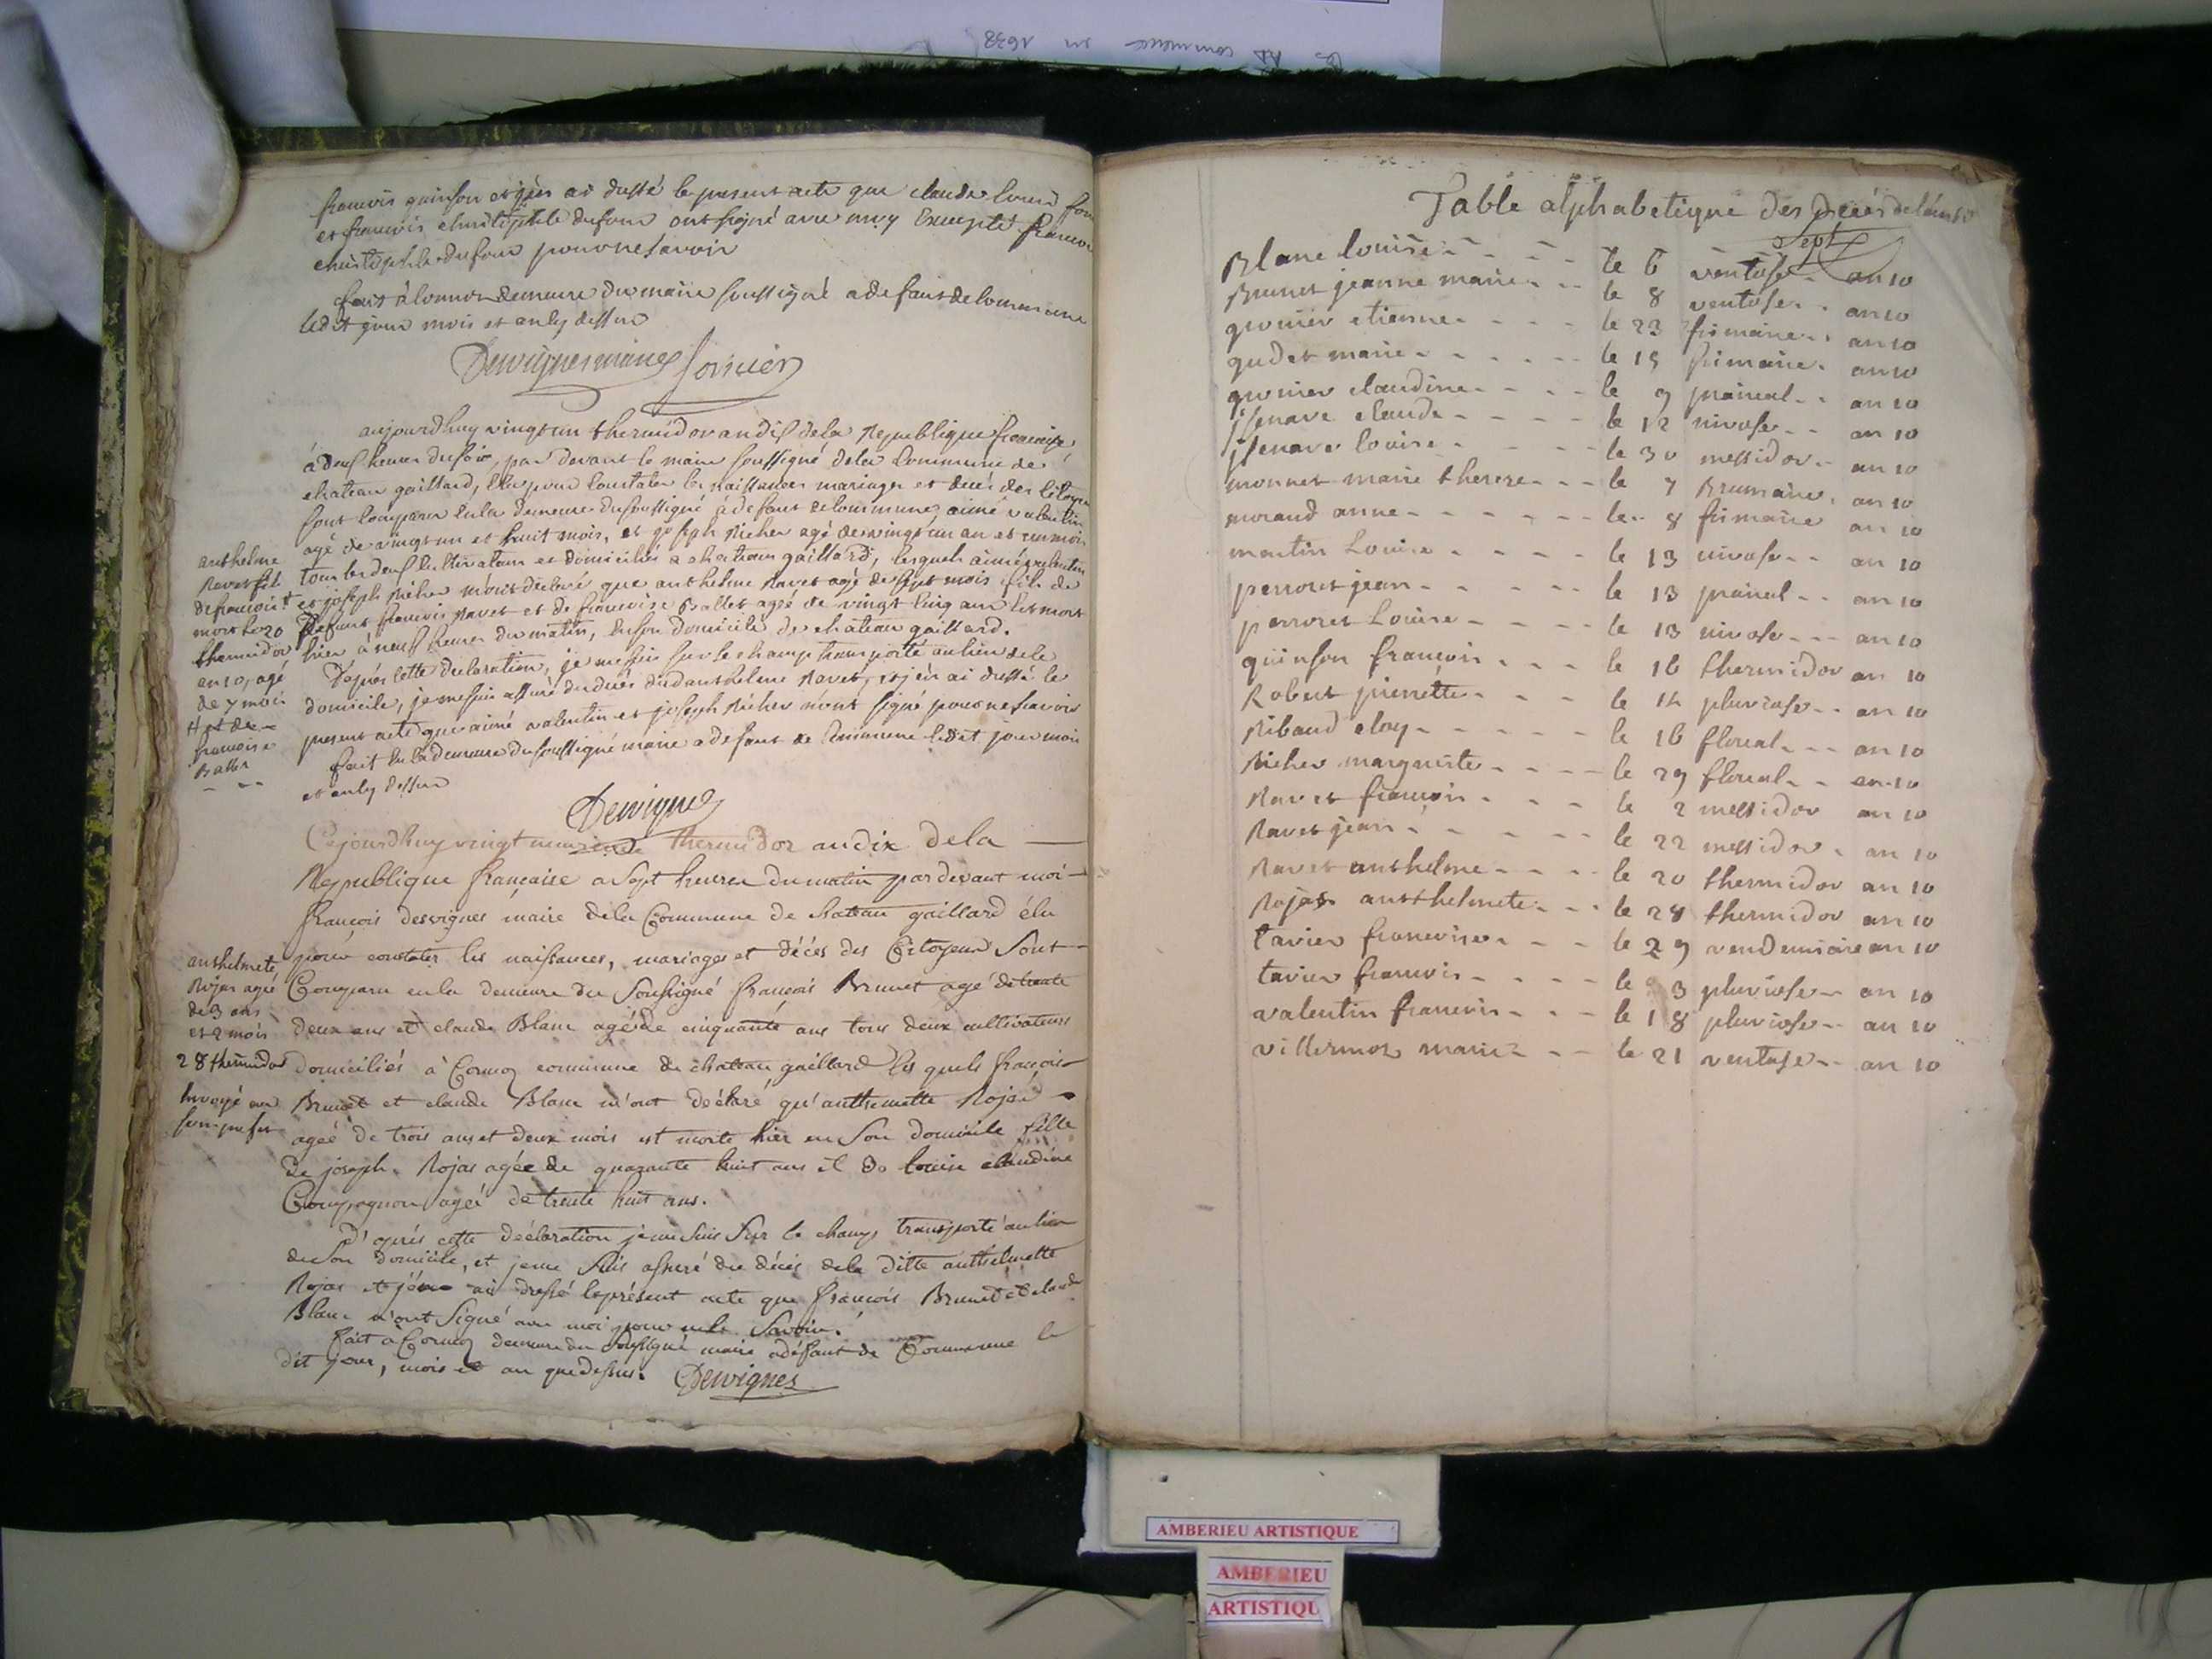 françois quinson et j'en ai dressé le present acte que claude
et françois christophle dufour ont signé avec moy Excepté françois
christophle dufour pour ne savoir
fait à Cormoz Demeure du maire soussigné a defaut de commune
ledit jour mois et an cy dessus
Desvignes maire
aujourdhuy vingt un thermidor an dix de la Republique francaise
à deux heures du soir, par devant le maire soussigné de la Commune de
chateau gaillard, élu pour constater les naissances mariages et décés des citoyens
sont comparu en la demeure du soussigné à defaut de commune, aimé valentin
agé de vingt un et huit mois, et joseph Richer agé de vingt un an et un mois
tous les deux cultivateurs et domiciliés a chateau gaillard, lesquels aimé valentin
et joseph Richer m'ont declaré que anthelme Ravet agé de sept mois fils de
Defunt francois Ravet et de francoise Ballet ageé de vingt cinq ans est mort
hier à neuf heures du matin, en son domicile de chateau gaillard.
D'aprés cette declaration, je me suis sur le champ transporté au lieu de ce
domicile, je me suis assuré du décés dud anthelme Ravet, et j'en ai dressé le
present acte que aimé valentin et joseph Richer n'ont signé pour ne savoir
fait en la demeure du soussigné maire a defaut de Commune ledit jour mois
et an cy dessus
Desvignes
anthelme
Ravet fils
de francois †
mort le 20
thermidor
an 10, agé
de 7 mois
# et de
francoise
Ballet
Cejourdhuy vingt neuf thermidor an dix de la
Republique française a Sept heures du matin par devant moi
françois desvignes maire de la Commune de chateau gaillard élu
pour constater les naissances, mariages et décés des Citoyens Sont
Comparu en la demeure du Soussigné françois Brunet agé de trente
deux ans et claude Blanc agé de cinquante ans tous deux cultivateurs
domiciliés à Cormoz commune de chateau gaillard les quels françois
Brunet et claude Blanc m'ont déclaré qu'anthelmette Rojas
ageé de trois ans et deux mois est morte hier en Son domicile fille
De joseph Rojas agée de quarante huit ans et de louise claudine
Compagnon ageé de trente huit ans.
D'aprés cette déclaration je me suis Sur le champ transporté au lieu
de Son domicile, et je me Suis assuré du décés de la ditte anthelmette
Rojas et j'en ai dressé le présent acte que françois Brunet et claude
Blanc n'ont Signé avec moi pour ne le Savoir.
fait a Cormoz demeure du Soussigné maire a défaut de Commune le
dit jour, mois et an que dessus. Desvignes
anthelmete
Rojas ageé
de 3 ans
et 2 mois
28 thermidor
Envoyé au
Table alphabetique des Décés de l'an 10
Blanc louise - - - - le 6 ventose - an 10
Brunet jeanne marie - - le 8 ventose - an 10
grenier etienne - - - - le 23 frimaire - an 10
gudet marie - - - - - le 15 frimaire - an 10
grenier claudine - - - - le 9 prairial - - an 10
jsenave claude - - - - le 12 nivose - - an 10
jsenave louise - - - - le 30 messidor - an 10
monnet marie therese - - - le 7 Brumaire - an 10
morand anne - - - - - - le 8 frimaire an 10
martin Louise - - - - - le 13 nivose - - an 10
perroret jean - - - - - le 13 prairial - - an 10
perroret Louise - - - - le 13 nivose - - - an 10
quinson francois - - - le 16 thermidor an 10
Robert pierrette - - - le 14 pluviose - - an 10
Ribaud eloy - - - - - le 16 floreal - - - an 10
Richer marguerite - - - - le 29 floreal - - an 10
Ravet francois - - - le 2 messidor an 10
Ravet jean - - - - - le 22 messidor - an 10
Ravet anthelme - - - - le 20 thermidor an 10
Rojas anthelmete - - - le 28 thermidor an 10
tavier francoise - - - le 29 vendemiaire an 10
tavier francois - - - - le 3 pluviose - an 10
valentin francois - - - le 18 pluviose - - an 10
villermoz marie - - - le 21 ventose - - an 10
AMBERIEU ARTISTIQUE
AMBERIEU
ARTISTIQU